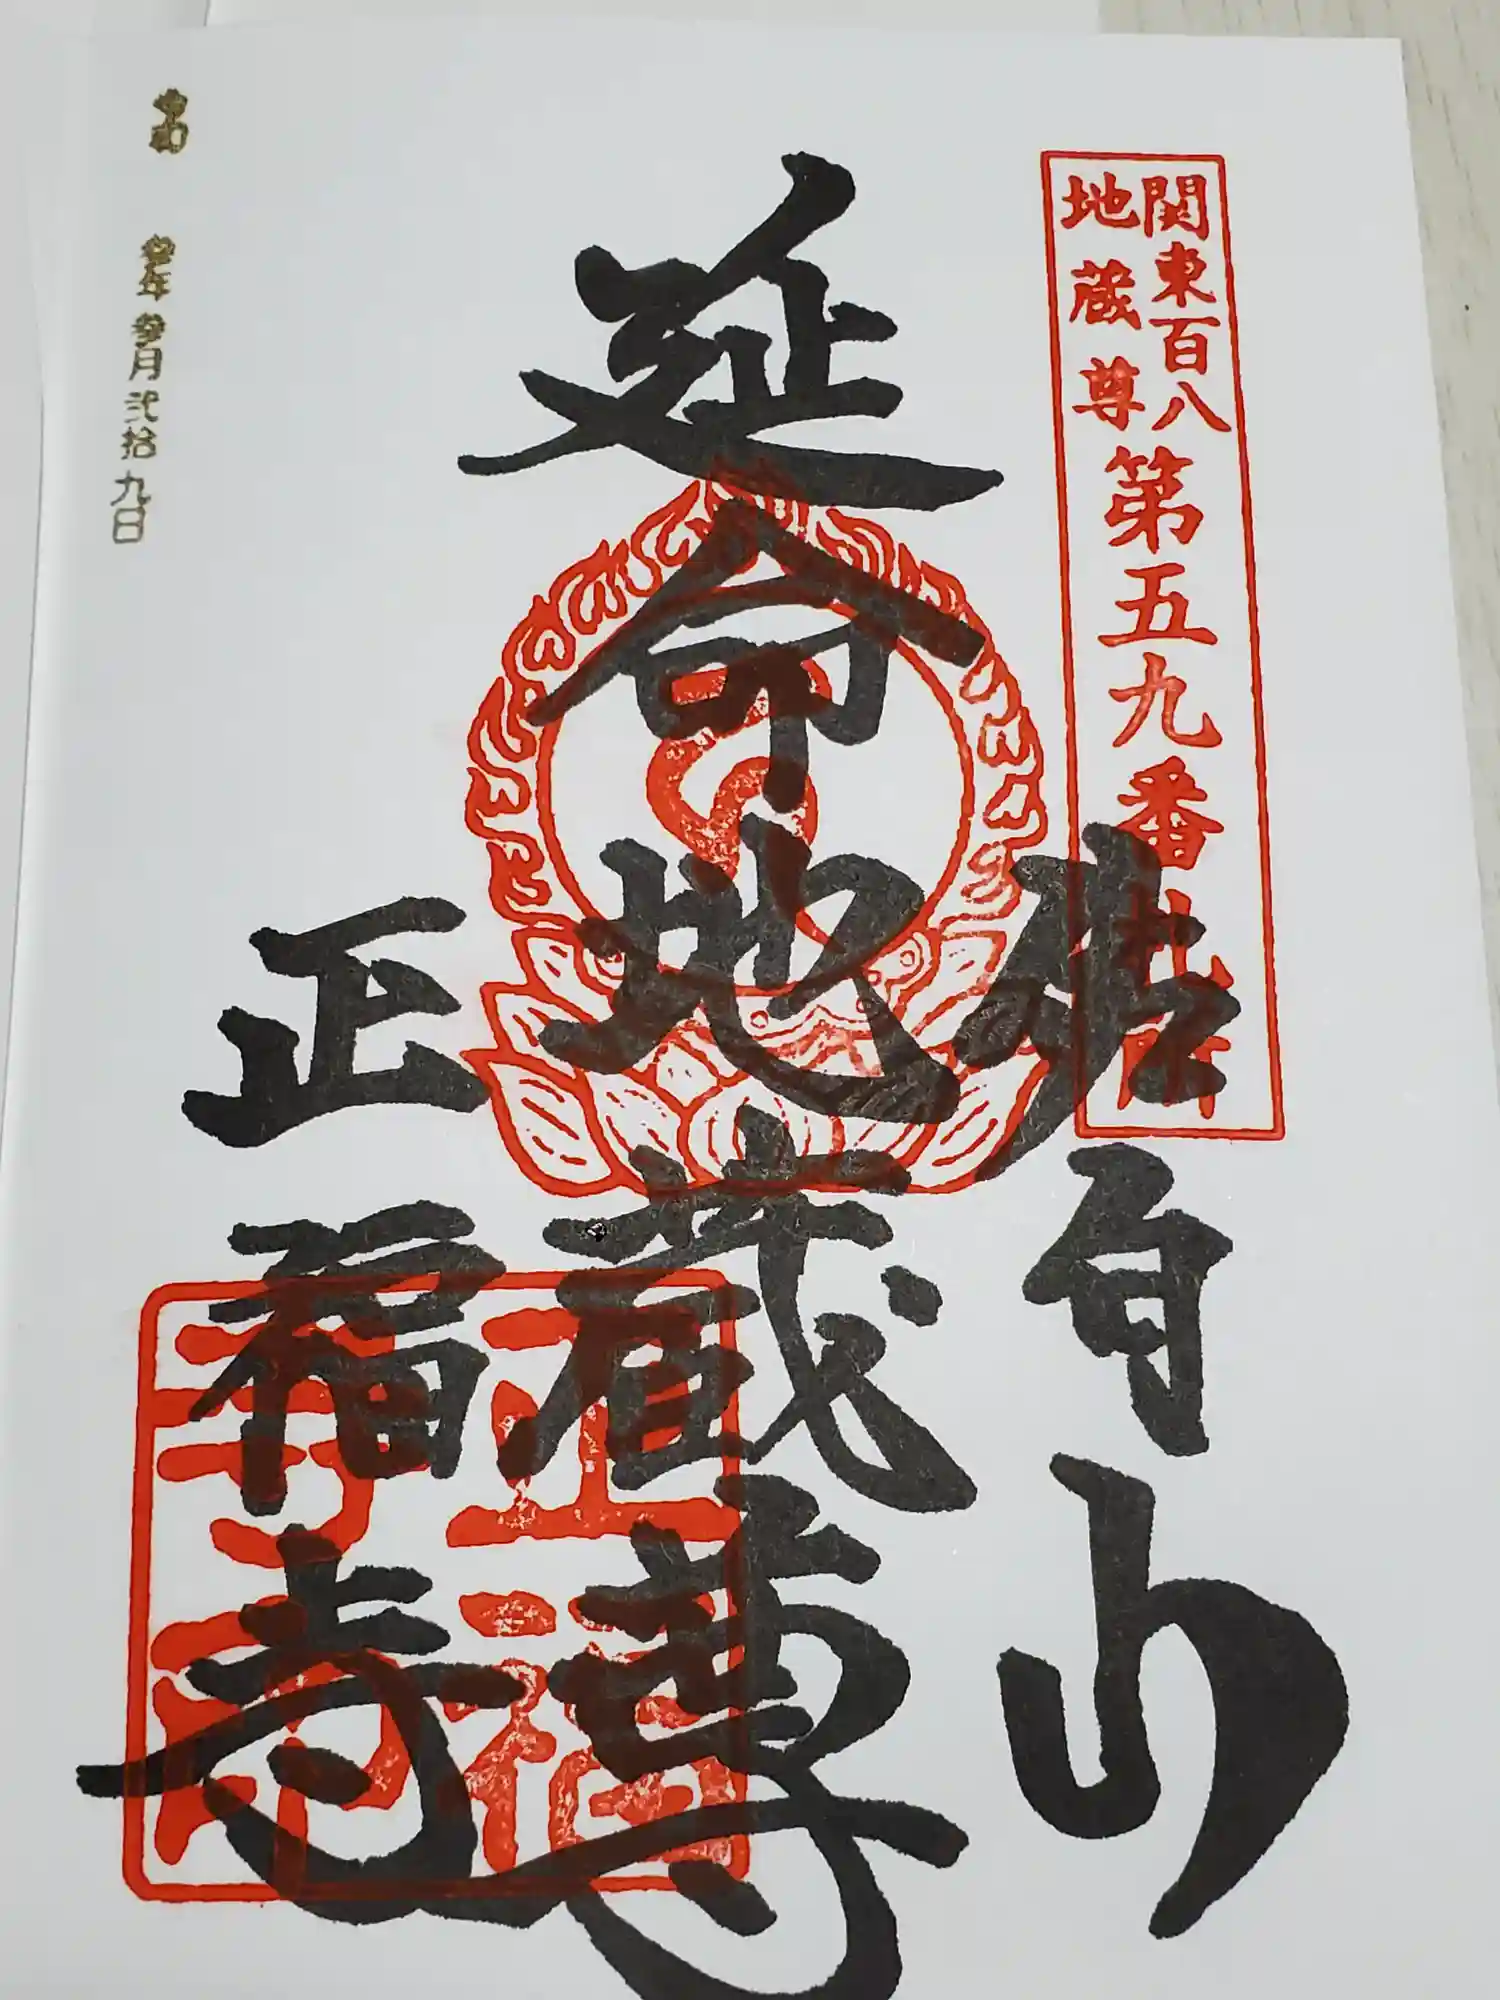 関東百八
地蔵尊
第五九番札所
佐白山
延命地蔵尊
正福寺
正福
寺印
令和 参年 参月 弐拾九日